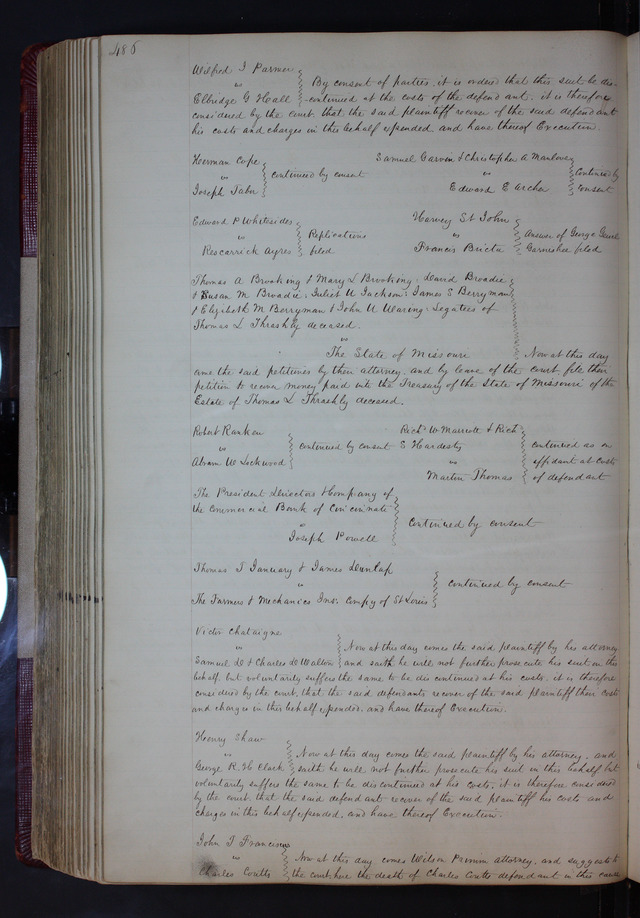 486
Wilfred J Parmer
vs } By consent of parties, it is ordered that this suit be dis-
Elbridge G Hoall } -continued at the costs of the defendant. it is therefore
considered by the court, that the said plaintiff recover of the said defendant
his costs and charges in this behalf expended, and have thereof Execution.
Herman Cope
vs } continued by consent
Joseph Tabor
Samuel Garvin & Christopher A Manlove
vs } Continued by
Edward E Archer } consent
Edward P Whitesides } Replications
vs
Roscarrick Ayres } filed
Harvey St John
vs } Answer of George
Francis } Garnishee filed
Thomas A Brooking & Mary L Brooking, David Broadie
& Susan M Broadie, Juliet W Jackson, James S Berryman
& Elizabeth M Berryman & John W Waring, Legatees of
Thomas L Thrashly deceased.
vs
The State of Missouri } Now at this day
came the said petitioners by their attorney, and by leave of the court file their
petition to recover money paid into the Treasury of the State of Missouri of the
Estate of Thomas L Thrashly deceased.
Robert Ranken
vs } continued by consent
Abram W Lockwood
Richd W Marriott & Richd
S Hardesty } continued as on
vs } affidavit at costs
Martin Thomas } of defendant
The President Directors & Company of
the Commercial Bank of Cincinnati
vs } Continued by consent
Joseph Powell
Thomas T January & James Dunlap
vs } continued by consent
The Farmers & Mechanics Ins. Compy of St Louis
Victor Chataigne
vs } Now at this day comes the said plaintiff by his attorney
Samuel D & Charles D Walton } and saith he will not further prosecute his suit in this
behalf, but voluntarily suffers the same to be discontinued at his costs, it is therefore
considered by the court, that the said defendants recover of the said plaintiff their costs
and charges in this behalf expended, and have thereof Execution.
Henry Shaw
vs } Now at this day comes the said plaintiff by his attorney, and
George R. H. Clark } saith he will not further prosecute his suit in this behalf but
voluntarily suffers the same to be discontinued at his costs, it is therefore considered
by the court that the said defendant recover of the said plaintiff his costs and
charges in this behalf expended, and have thereof Execution.
John T Franciscus
vs } Now at this day comes Wilson Primm attorney, and suggests to
Charles Coutts } the court here the death of Charles Coutts defendant in this cause